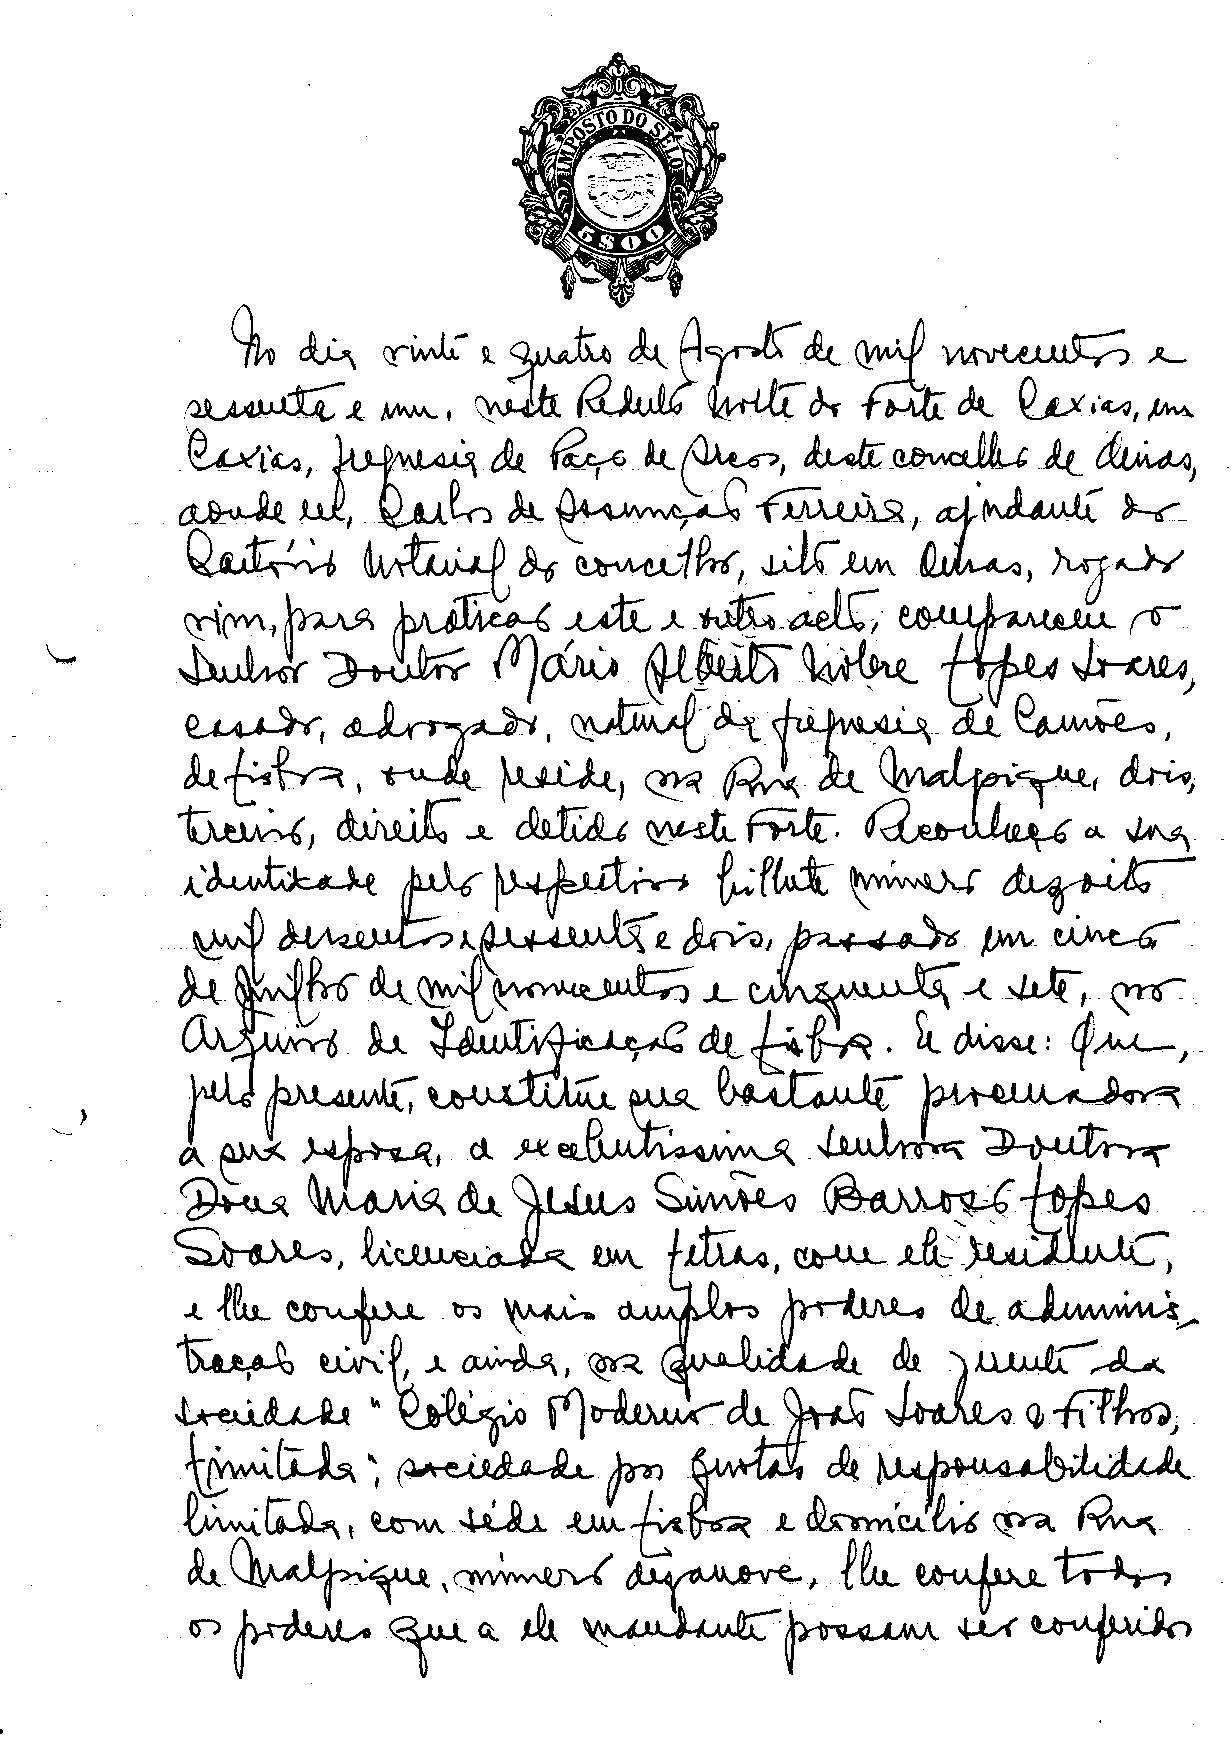 IMPOSTO DO SÊLO
5$00
No dia vinte e quatro de Agosto de mil novecentos e
sessenta e um, neste Reduto Norte do Forte de Caxias, em
Caxias, freguesia de Paço de Arcos, deste concelho de Oeiras,
aonde eu, Carlos de Assunção Ferreira, ajudante do
Cartório Notarial do concelho, sito em Oeiras, rogado
vim, para praticar este e outro acto, compareceu o
Senhor Doutor Mário Alberto Nobre Lopes Soares,
casado, advogado, natural da freguesia de Camões,
de Lisboa, onde reside, na Rua de Malpique, dois,
terceiro, direito e detido neste Forte. Reconheço a sua
identidade pelo respectivo bilhete número dezoito
mil duzentos e sessenta e dois, passado em cinco
de Julho de mil novecentos e cinquenta e sete, no
Arquivo de Identificação de Lisboa. E disse: Que,
pelo presente, constitúe sua bastante procuradora
a sua esposa, a excelentissima Senhora Doutora
Dona Maria de Jesus Simões Barroso Lopes
Soares, licenciada em Letras, com ele residente,
e lhe confere os mais amplos poderes de adminis-
tração civil, e ainda, na qualidade de gerente da
sociedade "Colégio Moderno de João Soares & Filhos,
Limitada", sociedade por quotas de responsabilidade
limitada, com séde em Lisboa e domicílio na Rua
de Malpique, número dezanove, lhe confere todos
os poderes que a ele mandante possam ser conferidos